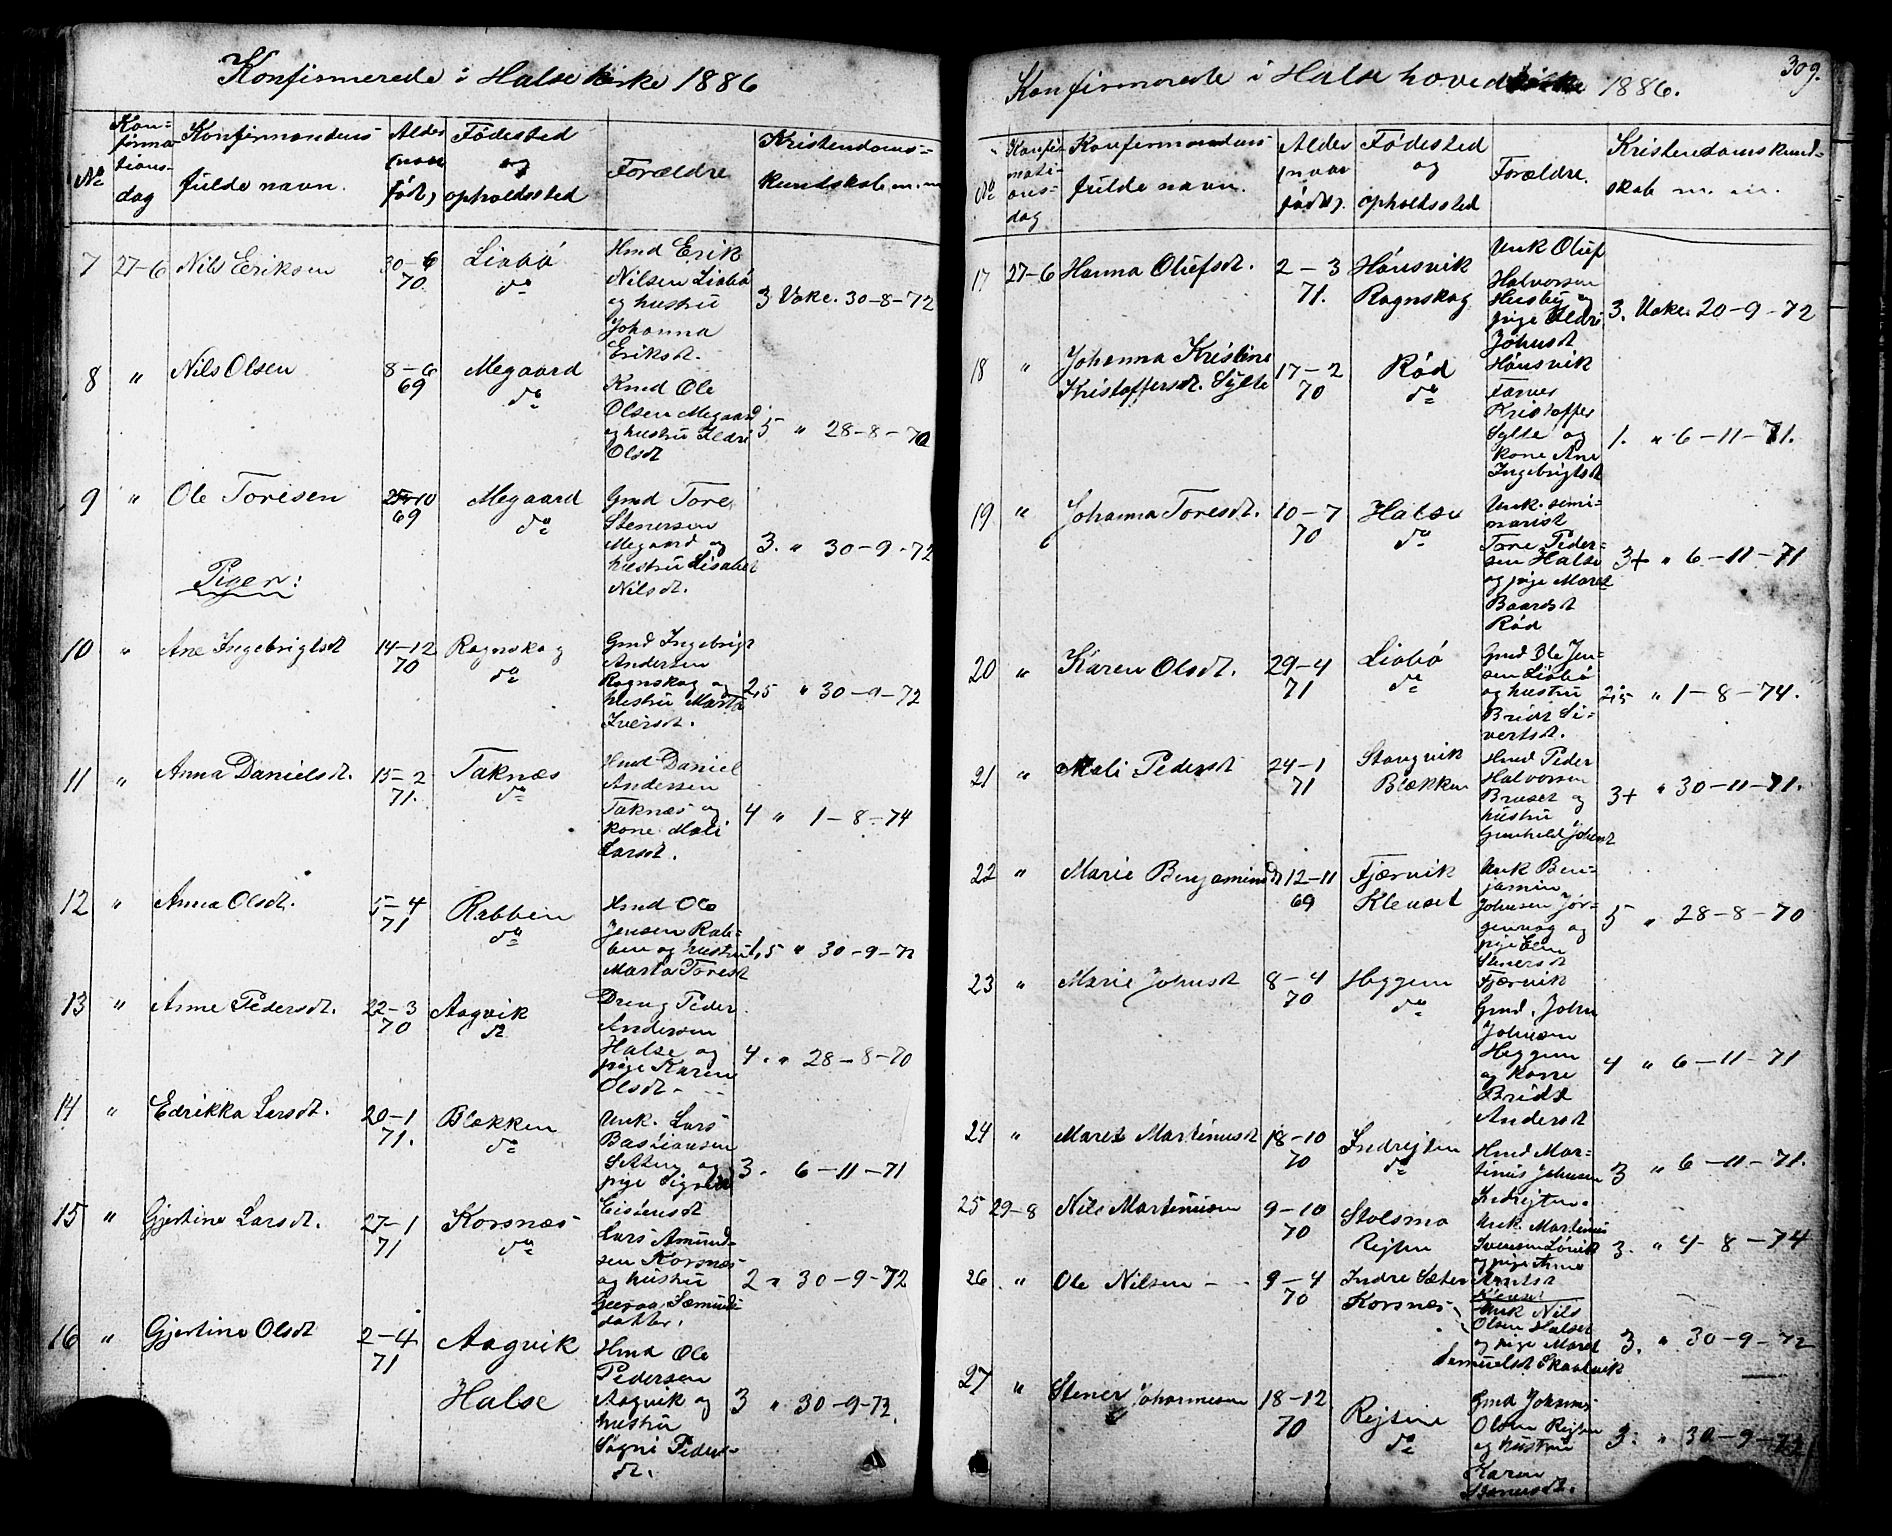 Konfirmerede i Halse kirke 1886
No
Konfirmationsdag
Konfirmandens fulde navn.
Alder (naar født)
Fødested og opholdssted
Forældre
Kristendomskundskab m. m.
7 27-6 Nils Eriksen 30-6 70. Liabø do Hmd Erik Nilsen Liabø og hustru Johanna Eriksdt. 3 Vakc. 30-8-72
8 " Nils Olsen 8-6 69 Megaard do Kmd Ole Olsen Megaard og hustru Ildri Olsdt 5 " 28-8-70
9 " Ole Toresen 10 69 Megaard do Gmd Tore Stenersen Megaard og hustru Lisabet Nilsdt. 3. " 30-9-72
Piger:
10 " Ane Ingebrigtsdt 14-12 70 Rognskog do Gmd Ingebrigt Andersen Rognskog og hustru Marta Iversdt. 2,5 " 30-9-72
11 " Anna Danielsdt. 15-2 71. Taknæs do Hmd Daniel Andersen Taknæs og kone Mali Larsdt. 4 " 1-8-74
12 " Anna Olsdt. 5-4 71 Rabben do Hmd Ole Jensen Rabben og hustru Marta Toresdt 1,5 " 30-9-72
13 " Anne Pedersdt. 22-3 70 Aagvik do Dreng Peder Andersen Halse og pige Karen Olsdt 4. " 28-8-70
14 " Edrikka Larsdt. 20-1 71. Blekken do Unk. Lars Bastiansen Settem og pige Sigrid Eistensdt 3. 6-11-71
15 " Gjertine Larsdt. 27-1 71 Korsnæs do Lars Amundsen Korsnæs og hustru Sæmundsdatter. 2 " 30-9-72
16 " Gjertine Olsdt 2-4 71 Aagvik Halse Hmd Ole Pedersen Aagvik og hustru Søgni Pedersdt. 3 " 30-9-72.
Konfirmerede i Halse hovedkirke 1886.
309.
No
Konfirmationsdag
Konfirmandens fulde navn.
Alder (naar født).
Fødested og opholdssted
Forældre.
Kristendomskundskab m. m.
17 27-6 Hanna Olufsdt. 2-3 71. Hønsvik Rognskog Unk Oluf Halvorsen Husby og pige Ildri Johnsdt Hønsvik 3. Vakc. 20-9-72
18 " Johanna Kristine Kristoffersdt. Sylte 17-2 70 Rød do Farver Kristoffer Sylte og kone Ane Ingebrigtsdt 1. " 6-11-71.
19 " Johanna Toresdt. 10-7 70 Halse do Unk. seminarist Tore Pedersen Halse og pige Maret Baardsdt Rød 3+ " 6-11-71
20 " Karen Olsdt. 29-4 71 Liabø do Gmd Ole Jensen Liabø og hustru Bridt Sivertsdt. 2,5 " 1-8-74.
21 " Mali Pedersdt 24-1 71 Stangvik Blekken Hmd Peder Halvorsen Bruset og hustru Gunhild Johnsdt 3+ " 30-11-71.
22 " Marie Benjaminsdt 12-11 69 Fjærvik Klevset Unk Benjamin Johnsen Jørgenvog og pige Elen Stenersdt Fjærvik 5 " 28-8-70
23 " Marie Johnsdt 8-4 70 Heggem do Gmd. John Johnsen Heggem og kone Bridt Andersdt 4 " 6-11-71
24 " Maret Martinusdt 18-10 70 Indrejten do Hmd Martinus Johnsen Indrejten. 3 " 6-11-71.
25 29-8 Nils Martinusen 9-10 70 Stolsmo Rejten Unk. Martinus Iversen og pige Anne 3. " 4-8-74
26 " Ole Nilsen 9-4 70 Indre Sæter Korsnæs Unk Nils Olsen Halset og pige Maret Semuelsdt Skaalvik 3. " 30-9-72
27 " Stener Johannesen 18-12 70 Rejten do Gmd Johannes Olsen Rejten og hustru Karen Stenersdt. 3. " 30-9-72